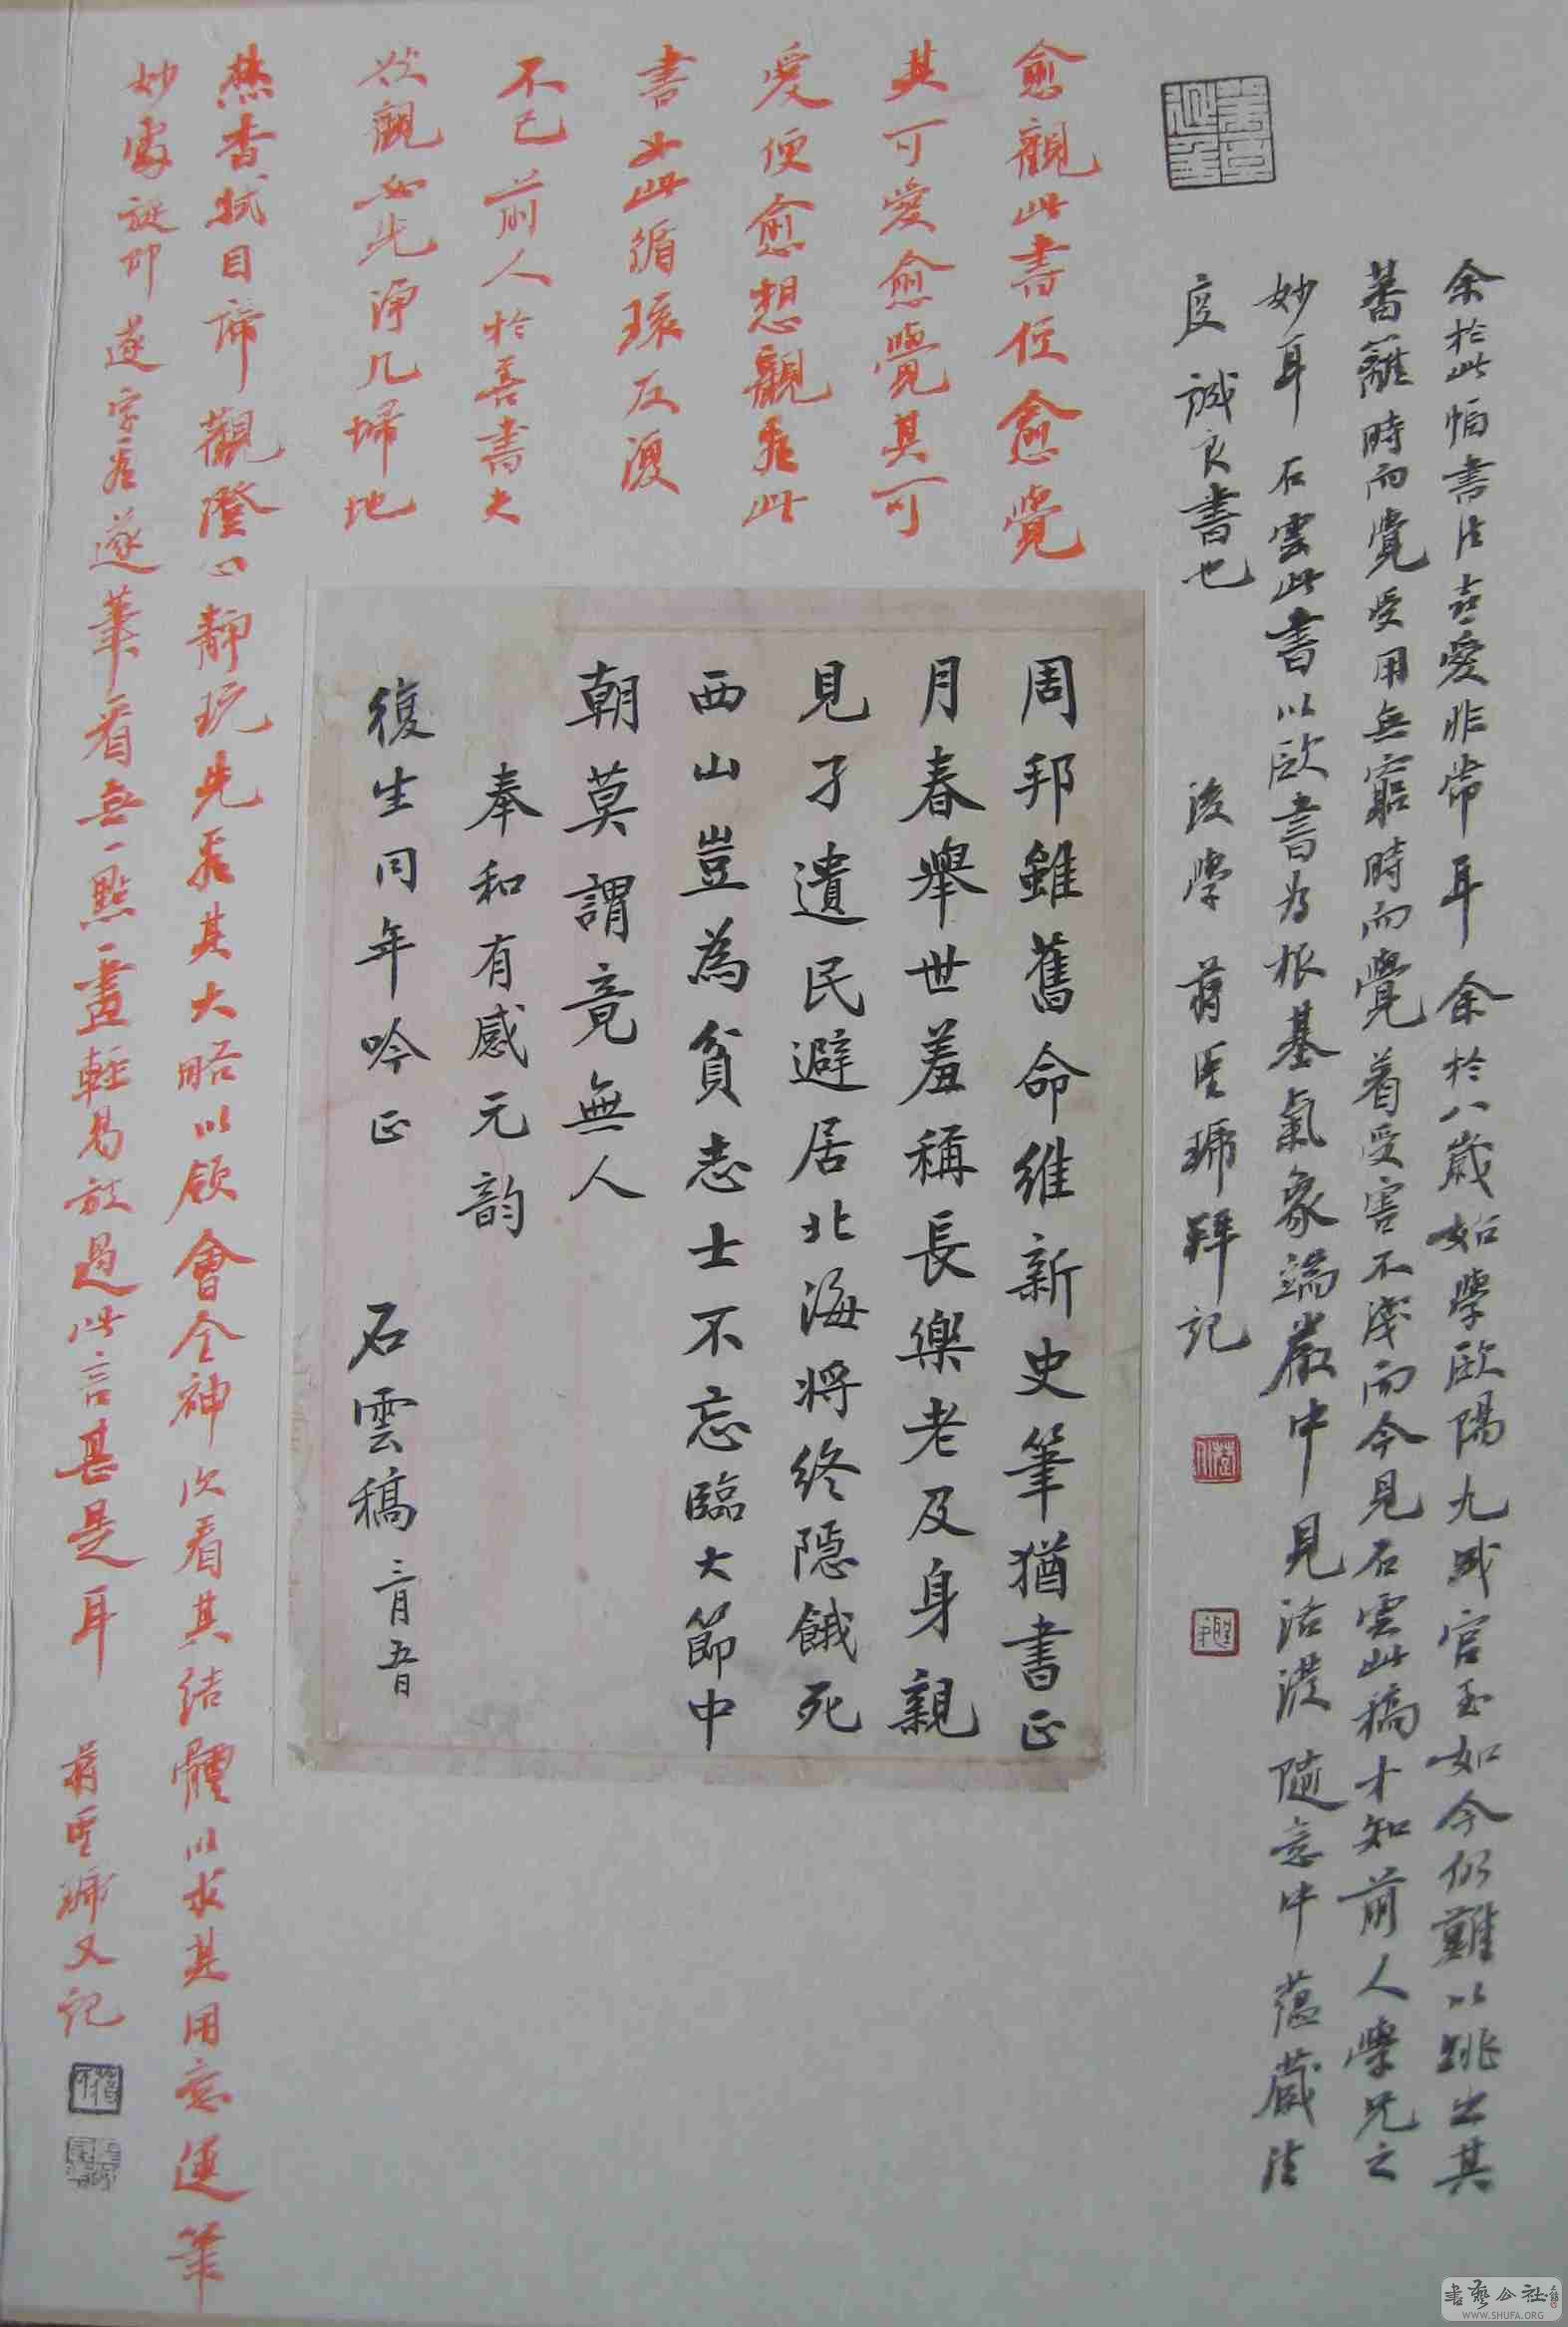 余於此帖書法喜愛非常耳余於八歲始學歐陽九成宮至如今仍難以跳出其
蕃籬時而覺受用無窮時而覺着受害不淺而今見石雲此稿才知前人學兄之
妙耳石雲此書以歐書為根基氣象端嚴中見活潑隨意中蘊藏法
度誠良書也 後學蔣 拜記
愈觀此書任愈覺
其可愛愈覺其可
愛便愈想觀看此
書如此循環反復
不已前人於善書大
欲觀必先淨几掃地
熱香拭目諦觀澄心靜玩先看其大略以領會全神次看其結體以求其用意運筆
妙處 逐字看逐筆看無一點一畫輕易放過此言甚是耳 蔣 又記
周邦雖舊命維新史筆猶書正
月春舉世羞稱長樂老及身親
見孑遺民避居北海將終隱餓死
西山豈為貧志士不忘臨大節中
朝莫謂竟無人
奉和有感元韵
復生同年吟正
石雲稿 二月五日
書藝公社
WWW.SHUFA.ORG